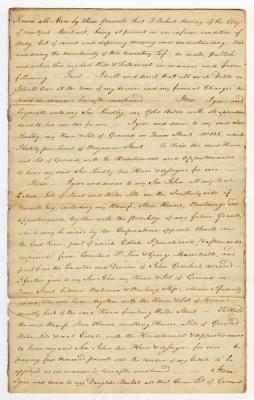 Know all Men by these Presents that I Robert Murray of the City
of New York Merchant, being at present in an infirm condition of
Body but of sound and disposing Memory and Understanding. And
considering the uncertainty of this transitory Life, do make, Publish
and declare this my last Will & Testament in manner and form
following First I will and direct that all such Debts as
I shall owe at the time of my decease and my funeral Charges be
paid as herein after mentioned Item I give and
bequeath unto my Son Lindley my Gold Watch with all
to his own use for ever I give and devise to my said Son
Lindley my House & Lot of Ground in Queen Street No. which
I lately purchased of Benjamin To Hold the said House
and Lot of Ground, with the Hereditaments and appurtenances
to him my said Son Lindley his Heirs & Assigns for ever
Item I give and devise to my Son John all my real
Estate, Lot of Land and Water Lots on the Southerly side of
including my Wharf, Store Houses, Buildings and
appurtenances, together with the Priviledge of any future Grants,
which may be made by the Corporation opposite thereto in
the East River, part of which Estate I purchased
from & George
part from the Executors and Devisees of John deceased
I further give to my Son John my House & Lot of Ground in
Street between and Slip, where
lives, the Rear house together with the House & Lot of Ground
directly back of the said House fronting Water Street To Hold
the said Wharf, Store Houses, dwelling Houses, Lots of Ground
Water Lots and Estate, with the Hereditaments & Appurtenances
to him my said Son John his Heirs & Assigns for ever he
paying five thousand pounds into the residue of my Estate to be
applied as is hereafter mentioned Item
I give and devise to my Daughter Beulah all that House Lot of Ground